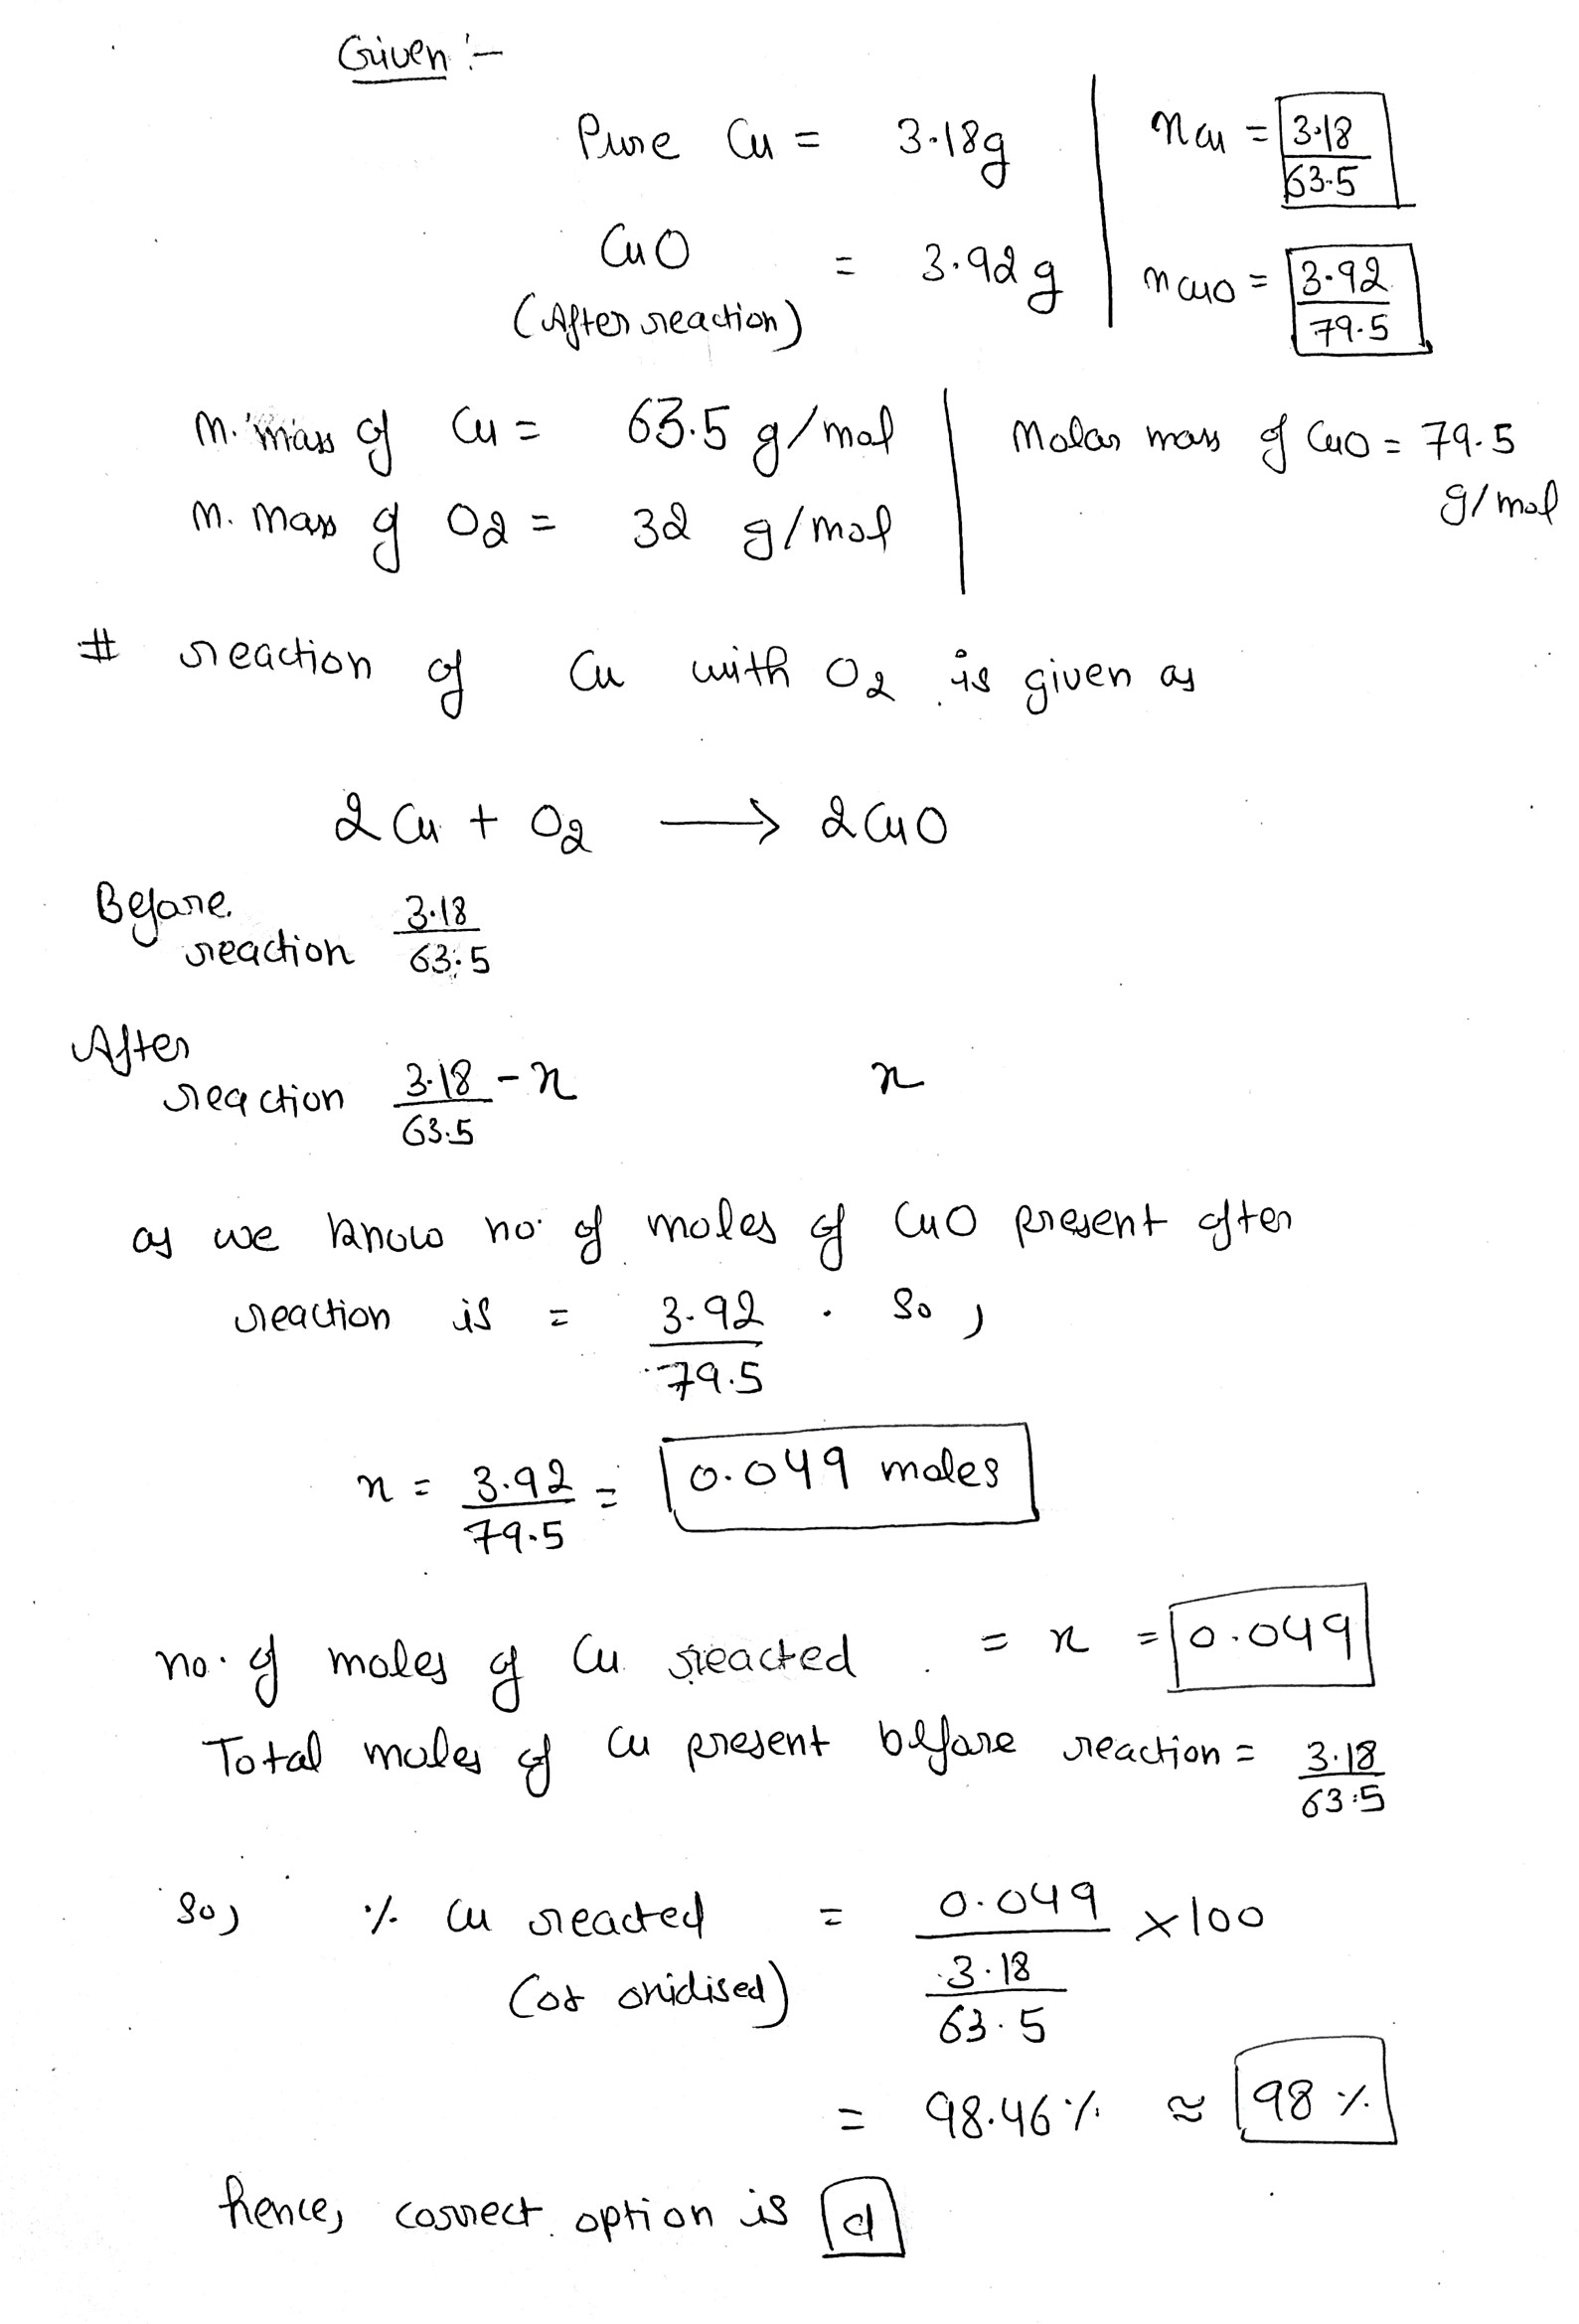 Given :-
Pure Cu = 3.18g | nCu = 3.18/63.5
CuO (After reaction) = 3.92g | nCuO = 3.92/79.5
M. mass of Cu = 63.5 g/mol | Molar mass of CuO = 79.5 g/mol
M. mass of O2 = 32 g/mol
# reaction of Cu with O2 is given as
2Cu + O2 → 2CuO
Before reaction 3.18/63.5
After reaction 3.18/63.5 - x x
as we know no. of moles of CuO present after
reaction is = 3.92/79.5 . So,
x = 3.92/79.5 = 0.049 moles
no. of moles of Cu reacted = x = 0.049
Total moles of Cu present before reaction = 3.18/63.5
So, % Cu reacted (or oxidised) = 0.049/(3.18/63.5) × 100
= 98.46% ≈ 98%
hence, correct option is d